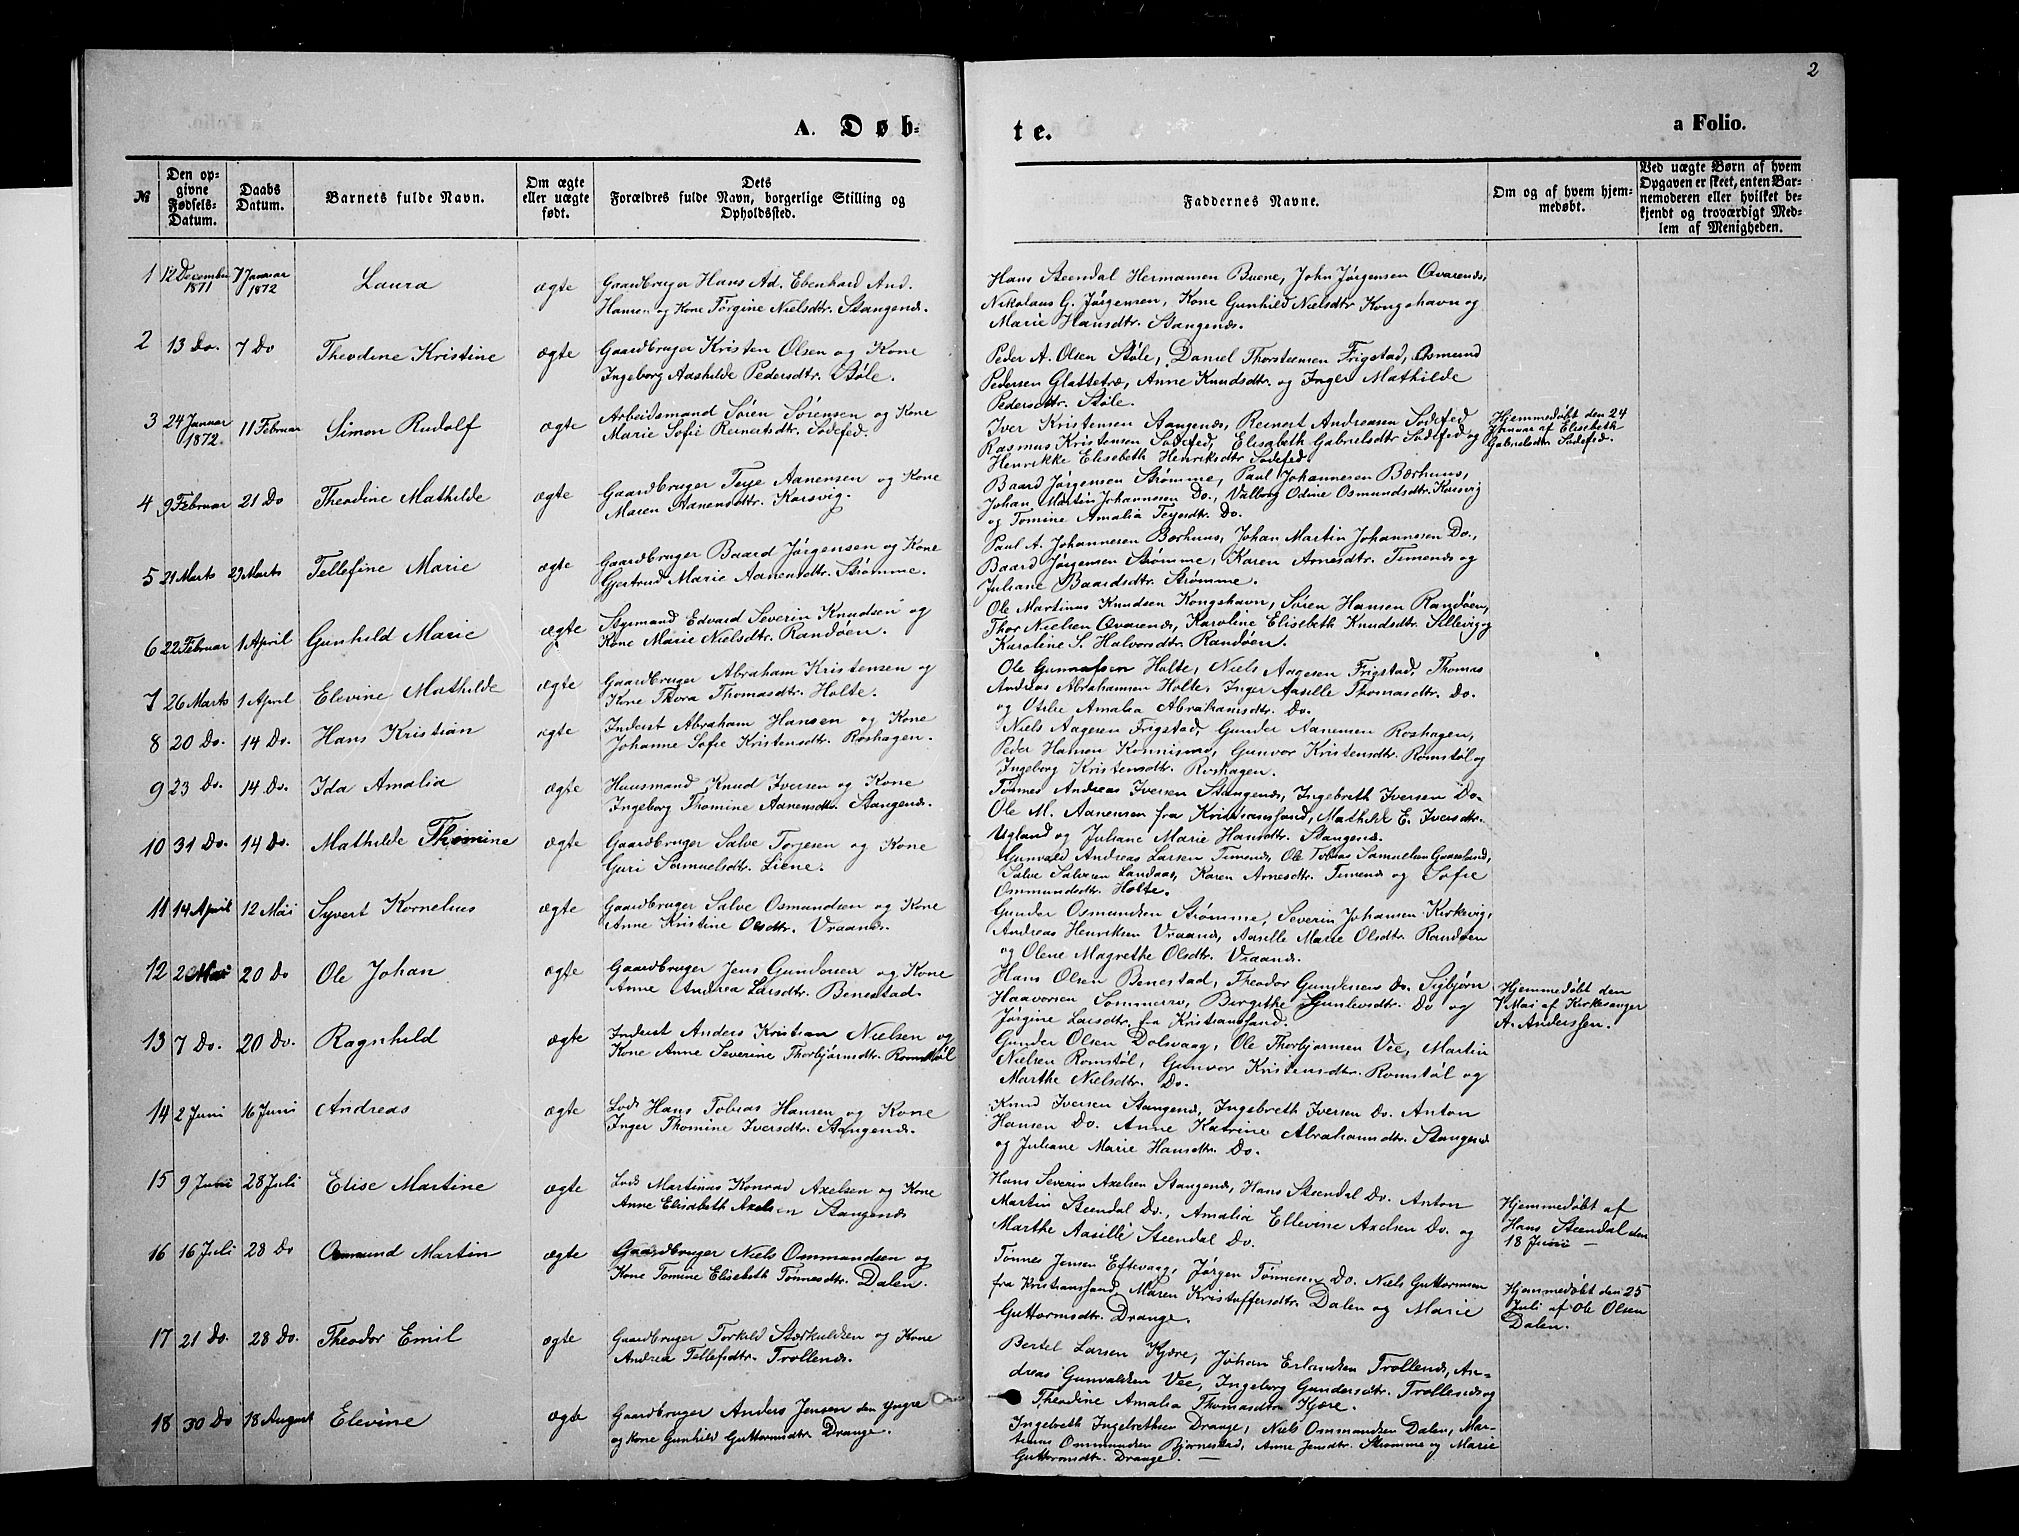 2
A. Døb-
te.
a Folio.
№
Den op-
givne
Fødsels-
Datum.
Daabs
Datum.
Barnets fulde Navn.
Om ægte
eller uægte
født.
Dets
Forældres fulde Navn, borgerlige Stilling og
Opholdssted.
Faddernes Navne.
Om og af hvem hjem-
medøbt.
Ved uægte Børn af hvem
Opgaven er skeet, enten Bar-
nemoderen eller hvilket be-
kjendt og troværdigt Med-
lem af Menigheden.
1 12 December 1871 7 Januar 1872 Laura ægte
Gaardbruger Hans Ad. Ebenhard And.
Hansen og Kone Jørgine Nielsdtr. Stangenæs.
Hans Steendal Hermansen Buene, John Jørgensen Qvarenæs,
Nikolaus G. Jørgensen, Kone Gunhild Nielsdtr. Kongshavn og
Marie Hansdtr. Stangenæs.
2 13 Do. 7 Do Theodine Kristine ægte
Gaardbruger Kristen Olsen og Kone
Ingeborg Aashilde Pedersdtr. Støle.
Peder A. Olsen Støle, Daniel Thorsteensen Frigstad, Osmund
Pedersen Glattetræ, Anne Knudsdtr. og Inger Mathilde
Pedersdtr. Støle.
3 24 Januar 1872. 11 Februar Simon Rudolf ægte
Arbeidsmand Søren Sørensen og Kone
Marie Sofie Reinertsdtr. Sødefed.
Iver Kristensen Stangenæs, Reinert Andreasen Sødefed,
Rasmus Kristensen Sødefed, Elisabeth Gabrielsdtr Sødefed og
Henrikke Elisebeth Henriksdtr Sødefed.
Hjemmedøbt den 24
Januar af Elisebeth
Gabrielsdtr Sødefed.
4 9 Februar 21 Do Theodine Mathilde ægte
Gaardbruger Teje Aanensen og Kone
Maren Aanensdtr. Korsvig.
Baard Jørgensen Strømme, Paul Johannesen Børhuus,
Johan Martin Johannesen Do., Valborg Odine Osmundsdtr. Korsvig
og Tomine Amalia Tejesdtr. Do.
5 21 Marts 29 Marts Tellefine Marie ægte
Gaardbruger Baard Jørgensen og Kone
Gjertrud Marie Aanensdtr. Strømme.
Paul A. Johannesen Børhuus, Johan Martin Johannesen Do.,
Baard Jørgensen Strømme, Karen Arnesdtr. Timenæs og
Juliane Baardsdtr. Strømme.
6 22 Februar 1 April Gunhild Marie ægte
Sygmand Edvard Severin Knudsen og
Kone Marie Nielsdtr. Randøen.
Ole Martinus Knudsen Kongshavn, Søren Hansen Randøen,
Thor Nielsen Qvarenæs, Karoline Elisebeth Knudsdtr. Sillevig og
Karoline S. Halvorsdtr. Randøen.
7 26 Marts 1 April Elevine Mathilde ægte
Gaardbruger Abraham Kristensen og
Kone Thora Thomasdtr. Holte.
Ole Gunnufsen Holte, Niels Aagesen Frigstad, Thomas
Andreas Abrahamsen Holte, Inger Aasille Thomasdtr. Do.
og Otilie Amalia Abrahamsdtr. Do.
8 20 Do. 14 Do. Hans Kristian ægte
Inderst Abraham Hansen og Kone
Johanne Sofie Kristensdtr. Roshagen.
Niels Aagesen Frigstad, Gunder Aanensen Roshagen,
Peder Hansen Konnismo, Gunvor Kristensdtr. Romstøl og
Ingeborg Kristensdtr. Roshagen.
9 23 Do. 14 Do. Ida Amalia ægte
Huusmand Knud Iversen og Kone
Ingeborg Thomine Aanensdtr. Stangenæs.
Tønnes Andreas Iversen Stangenæs, Ingebreth Iversen Do.
Ole M. Aanensen fra Kristiansand, Mathilde E. Iversdtr.
Ugland og Juliane Marie Hansdtr. Stangenæs.
10 31 Do. 14 Do. Mathilde Thomine ægte
Gaardbruger Salve Torjesen og Kone
Guri Samuelsdtr. Liene.
Gunvald Andreas Larsen Timenæs, Ole Tobias Samuelsen Gaaseland,
Salve Salvesen Landaas, Karen Arnesdtr. Timenæs og Sofie
Ommundsdtr. Holte.
11 14 April 12 Mai Syvert Kornelius ægte
Gaardbruger Salve Osmundsen og Kone
Anne Kristine Olsdtr. Vraanæs.
Gunder Osmundsen Strømme, Severin Johansen Kirkevig,
Andreas Henriksen Vraanæs, Aasille Marie Olsdtr. Randøen
og Olene Magrethe Olsdtr. Vraanæs.
12 2 Mai 20 Do Ole Johan ægte
Gaardbruger Jens Gundersen og Kone
Anne Andrea Larsdtr. Benestad.
Hans Olsen Benestad, Theodor Gundersen Do. Sigbjørn
Haavorsen Sommerro, Birgithe Gunlevsdtr. Do og
Jørgine Larsdtr. fra Kristiansand.
Hjemmedøbt den
7 Mai af Kirkesanger
A. Anderssen.
13 7 Do. 20 Do. Ragnhild ægte
Inderst Anders Kristian Nielsen og
Kone Anne Severine Thorbjørnsdtr. Romstøl
Gunder Olsen Dolsvaag, Ole Thorbjørnsen Vee, Martin
Nielsen Romstøl, Gunvor Kristensdtr. Romstøl og
Marthe Nielsdtr. Do.
14 2 Juni 16 Juni Andreas ægte
Lods Hans Tobias Hansen og Kone
Inger Thomine Iversdtr. Stangenæs.
Knud Iversen Stangenæs, Ingebreth Iversen Do. Anton
Hansen Do. Anne Katrine Abrahamsdtr. Stangenæs
og Juliane Marie Hansdtr. Do.
15 9 Juni 28 Juli Elise Martine ægte
Lods Martinas Konrad Axelsen og Kone
Anne Elisabeth Axelsen Stangenæs
Hans Severin Axelsen Stangenæs, Hans Steendal Do. Anton
Martin Steendal Do., Amalia Ellevine Axelsen Do. og
Marthe Aasille Steendal Do.
Hjemmedøbt af
Hans Steendal den
18 Juni
16 16 Juli 28 Do Osmund Martin ægte
Gaardbruger Niels Ommundsen og
Kone Tomine Elisebeth Tønnesdtr. Dalen.
Tønnes Jensen Eftevaag, Jørgen Tønnesen Do. Niels Guttormsen
fra Kristiansand, Maren Kristoffersdtr. Dalen og Marie
Guttormsdtr. Drange.
Hjemmedøbt den 25
Juli af Ole Olsen
Dalen.
17 21 Do. 28 Do. Theodor Emil ægte
Gaardbruger Torkild Stærkuldsen og Kone
Andrea Tellefsdtr. Trollenæs.
Bertel Larsen Kjære, Johan Erlandsen Trollenæs, An-
dreas Gunvaldsen Vee, Ingeborg Gundersdtr. Trollenæs og
Theodine Amalia Thomasdtr. Kjære.
18 30 Do 18 August Elevine ægte
Gaardbruger Anders Jensen den Yngre
og Kone Gunhild Guttormsdtr. Drange.
Ingebreth Ingebrethsen Drange, Niels Ommundsen Dalen, Mar-
tinus Ommundsen Bjørnestad, Anne Jensdtr. Strømme og Marie
Guttormsdtr. Drange.